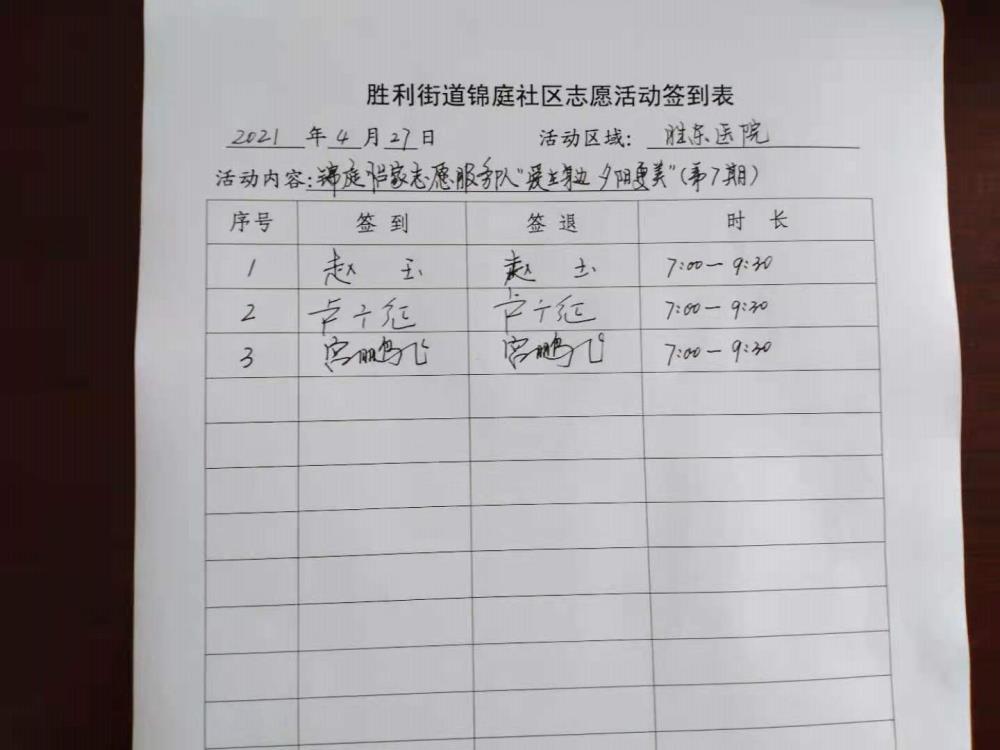 胜利街道锦庭社区志愿活动签到表
2021 年 4 月 27 日 活动区域: 胜东医院
活动内容: 锦庭"侣家志愿服务队"爱在身边 夕阳更美"(第7期)
序号 签到 签退 时长
1 赵玉 赵玉 7:00-9:30
2 7:00-9:30
3 宫鹏飞 宫鹏飞 7:00-9:30